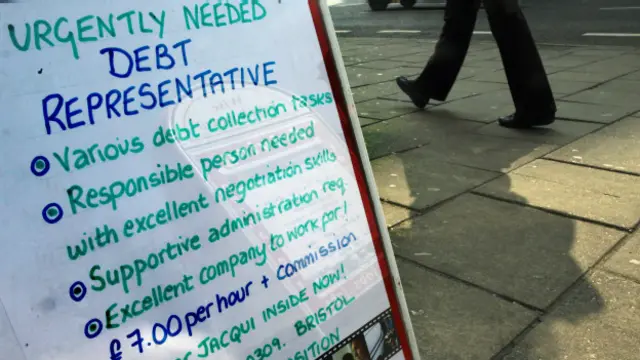 URGENTLY NEEDED
DEBT
REPRESENTATIVE
Various debt collection tasks
Responsible person needed
with excellent negotiation skills
Supportive administration req.
Excellent company to work for!
£7.00 per hour + commission
JACQUI INSIDE NOW!
0309. BRISTOL